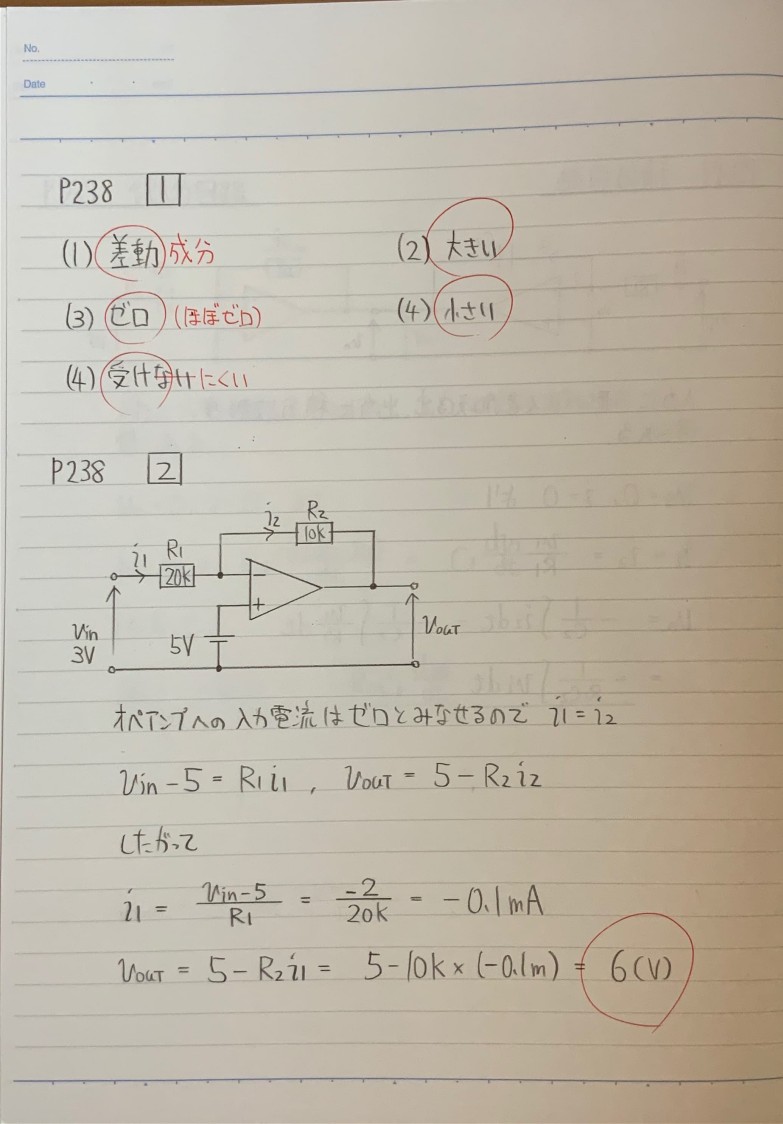 No.
Date
P238 1
(1) 差動成分 (2) 大きい
(3) ゼロ (ほぼゼロ) (4) 小さい
(4) 受けないけにくい
P238 2
i2 R2
10k
i1 R1
20k
−
+
Vin
3V
5V
VOUT
オペアンプへの入力電流はゼロとみなせるので i1 = i2
Vin − 5 = R1 i1 , VOUT = 5 − R2 i2
したがって
i1 = Vin−5 / R1 = −2 / 20k = −0.1mA
VOUT = 5 − R2 i1 = 5−10k × (−0.1m) = 6(V)